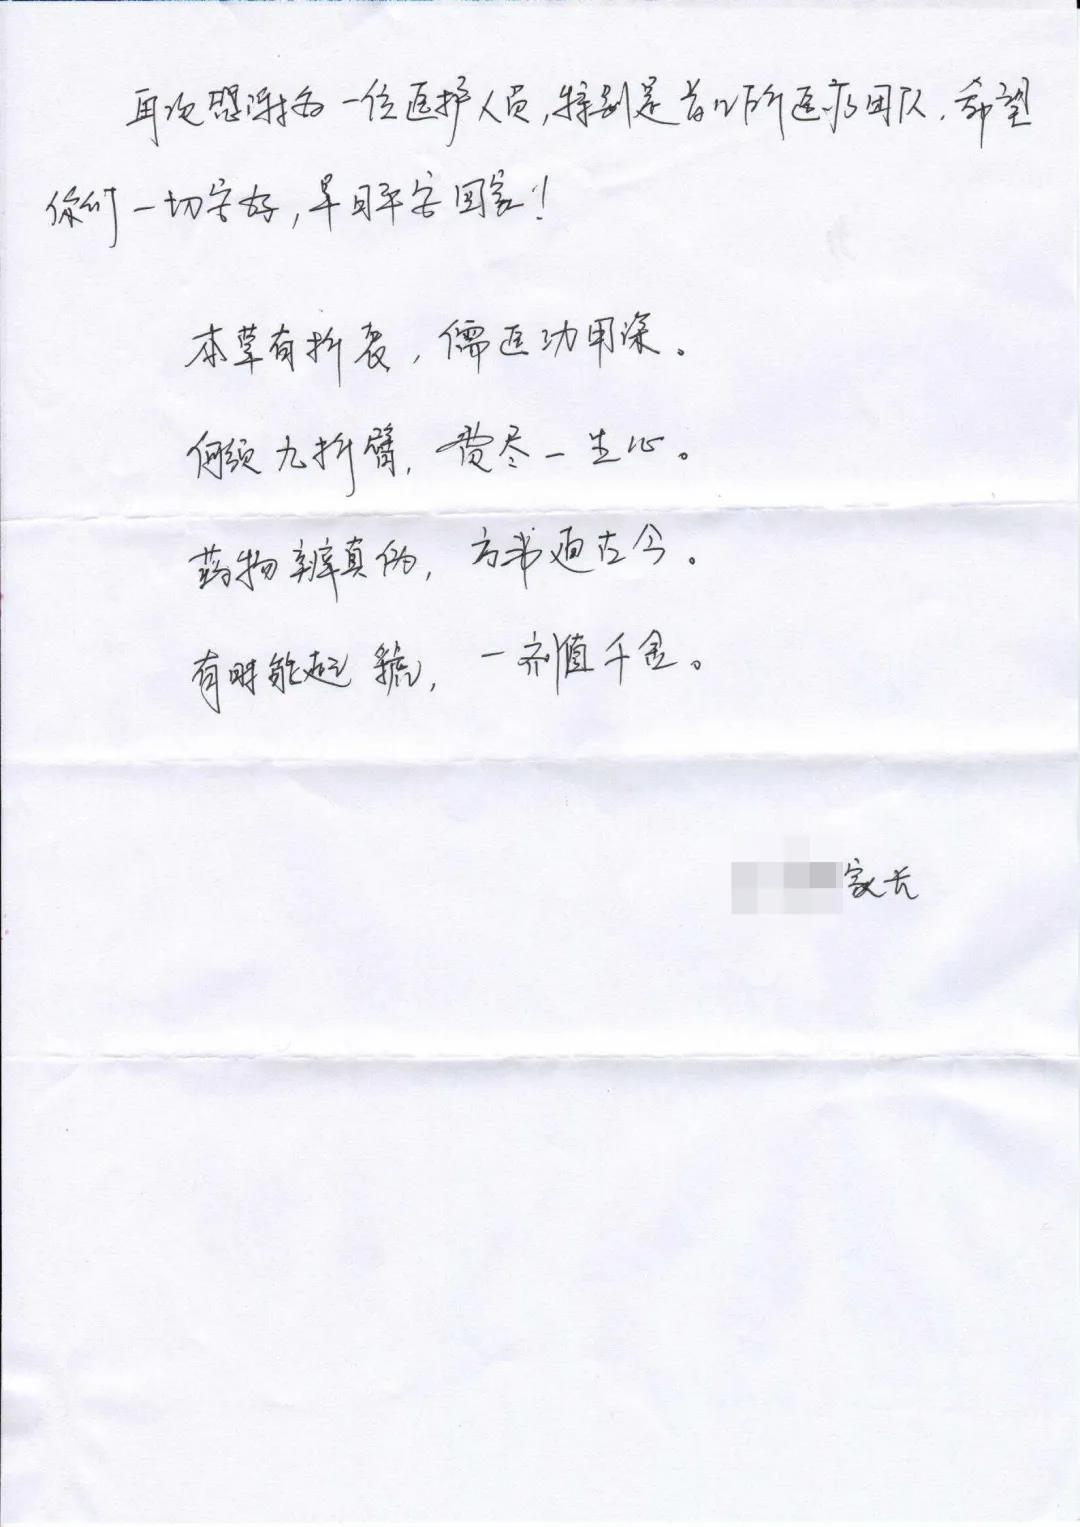 再次感谢每一位医护人员,特别是首儿所医疗团队.希望
你们一切安好,早日平安回家!
本草有折衷,儒医功用深。
何须九折臂,费尽一生心。
药物辨真伪,方书通古今。
有时能起虢,一剂值千金。
家长